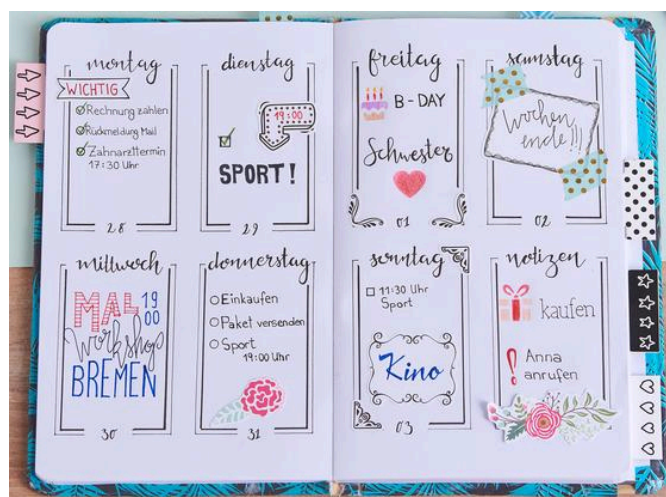 montag
WICHTIG
Rechnung zahlen
Rückmeldung Mail
Zahnarzttermin
17:30 Uhr
28
dienstag
19:00
SPORT!
29
mittwoch
MAL 19 00
Workshop
BREMEN
30
donnerstag
Einkaufen
Paket versenden
Sport
19:00 Uhr
31
freitag
B-DAY
Schwester
01
samstag
Wochen
ende!!!
02
sonntag
11:30 Uhr
Sport
Kino
03
notizen
kaufen
! Anna
anrufen